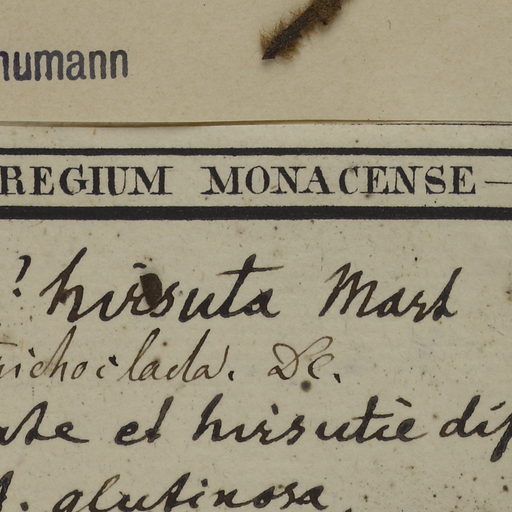 humann
REGIUM MONACENSE—
? hirsuta Mart
richoclada. DC.
ate et hirsutiè dif
A. glutinosa